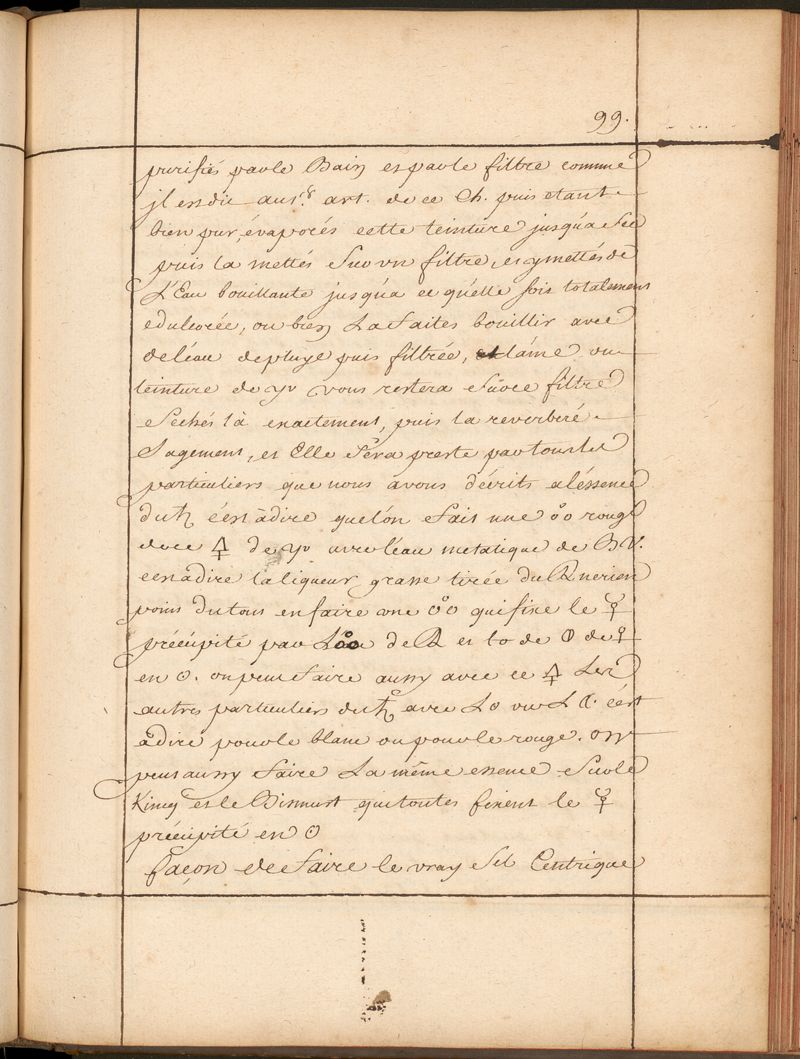 99.
purifiés par le Bain et par le filtre comme
jl est dit au 1.er art. de ce Ch. puis etant
bien pur, évaporés cette teinture jusqu'a sec
puis la mettés sur un filtre, et y mettés de
L'Eau bouillante jusqu'a ce qu'elle sois totalement
edulcorée, ou bien La faites bouillir avec
de léau de pluÿe puis filtrée, et láme ou
teinture de vous restera sur ce filtre
Sechés là exactement, puis la reverberé
Sagement, et Elle sera preste par tous les
particuliers que nous avons décrits a léssence
du ♄ c'est àdire que lón fais une o°o rouge
de ce 🜍 de avec léau metalique de
cest àdire la liqueur grasse tirée du
poins du tous en faire une o°o qui fixe le ☿
précipité par L' de et
en ☉. on peut faire aussy avec ce 🜍 Les
autres particuliers du ♄ avec L ou L c'ést
àdire pour le blanc ou pour le rouge. on
peus aussy faire La même essence sur le
Kincq et le Bismust qui toutes fixent le ☿
précipité en ☉
façon de faire le vray Sel Centrique